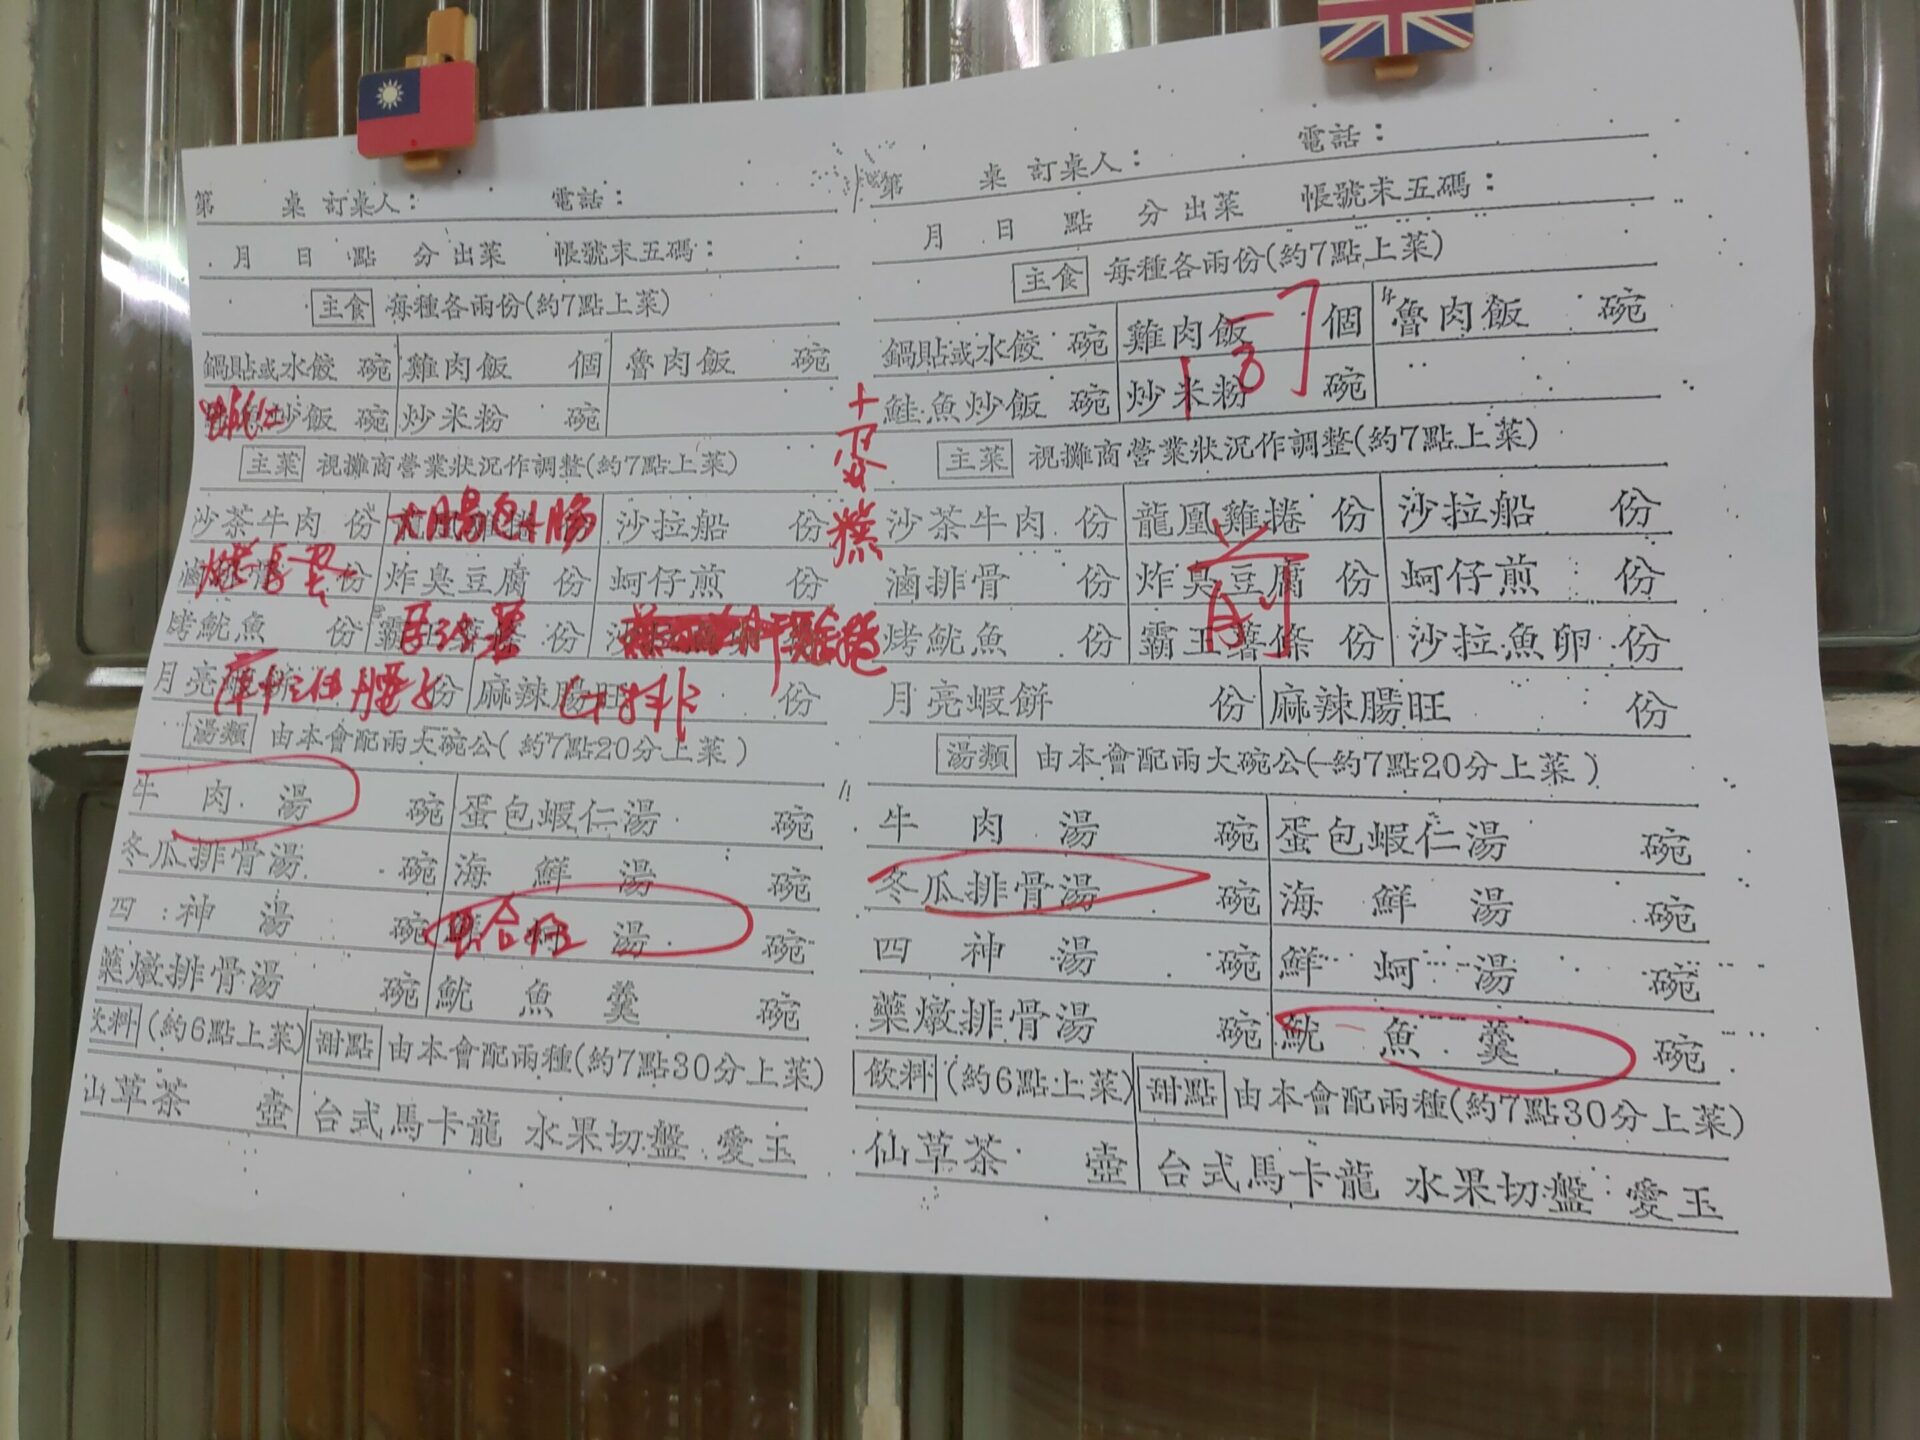 第 桌 訂桌人： 電話：
月 日 點 分 出菜 帳號末五碼：
主食 每種各兩份(約7點上菜)
鍋貼或水餃 碗 雞肉飯 個 魯肉飯 碗
炒飯 碗 炒米粉 碗
主菜 視攤商營業狀況作調整(約7點上菜)
沙茶牛肉 份 大腸包小腸 沙拉船 份
份 炸臭豆腐 份 蚵仔煎 份
烤魷魚 份 霸王薯條 份
月亮 份 麻辣腸旺 牛排 份
湯類 由本會配兩大碗公(約7點20分上菜)
牛肉湯 碗 蛋包蝦仁湯 碗
冬瓜排骨湯 碗 海鮮湯 碗
四神湯 碗 湯 碗
藥燉排骨湯 碗 魷魚羹 碗
飲料 (約6點上菜) 甜點 由本會配兩種(約7點30分上菜)
仙草茶 壺 台式馬卡龍 水果切盤 愛玉
第 桌 訂桌人： 電話：
月 日 點 分 出菜 帳號末五碼：
主食 每種各兩份(約7點上菜)
鍋貼或水餃 碗 雞肉飯 個 魯肉飯 碗
鮭魚炒飯 碗 炒米粉 碗
主菜 視攤商營業狀況作調整(約7點上菜)
沙茶牛肉 份 龍鳳雞捲 份 沙拉船 份
滷排骨 份 炸臭豆腐 份 蚵仔煎 份
烤魷魚 份 霸王薯條 份 沙拉魚卵 份
月亮蝦餅 份 麻辣腸旺 份
湯類 由本會配兩大碗公(約7點20分上菜)
牛肉湯 碗 蛋包蝦仁湯 碗
冬瓜排骨湯 碗 海鮮湯 碗
四神湯 碗 鮮蚵湯 碗
藥燉排骨湯 碗 魷魚羹 碗
飲料 (約6點上菜) 甜點 由本會配兩種(約7點30分上菜)
仙草茶 壺 台式馬卡龍 水果切盤 愛玉